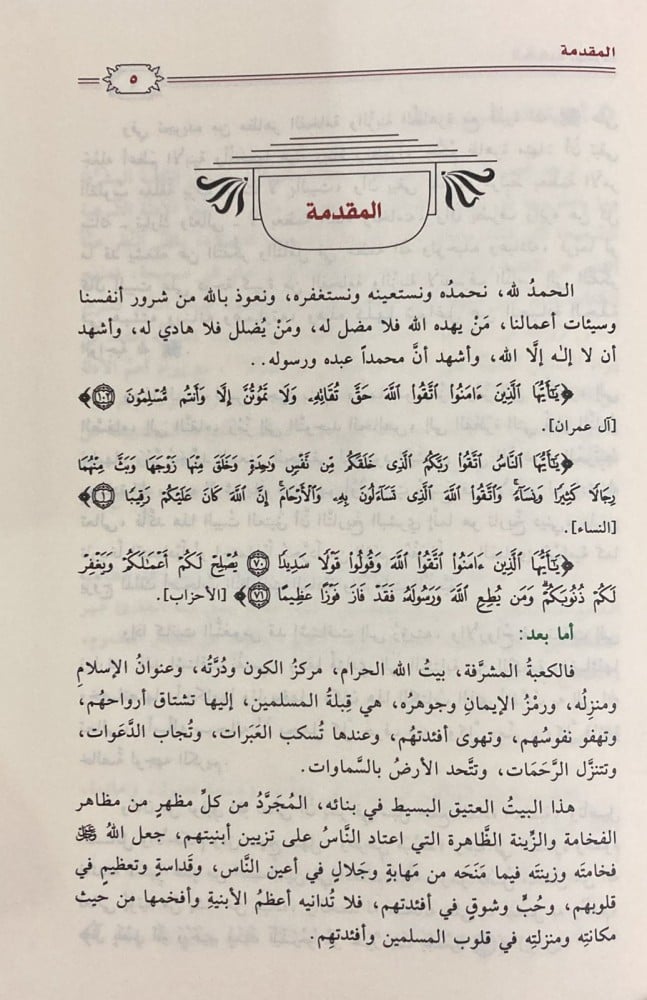 المقدمة
٥
المقدمة
الحمدُ لله، نحمدُه ونستعينه ونستغفره، ونعوذ بالله من شرور أنفسنا
وسيئات أعمالنا، مَنْ يهده الله فلا مضل له، ومَنْ يُضلل فلا هادي له، وأشهد
أن لا إلٰه إلَّا الله، وأشهد أنَّ محمداً عبده ورسوله..
﴿يَـٰٓأَيُّهَا ٱلَّذِينَ ءَامَنُوا۟ ٱتَّقُوا۟ ٱللَّهَ حَقَّ تُقَاتِهِۦ وَلَا تَمُوتُنَّ إِلَّا وَأَنتُم مُّسْلِمُونَ ۝١٠٢﴾
[آل عمران].
﴿يَـٰٓأَيُّهَا ٱلنَّاسُ ٱتَّقُوا۟ رَبَّكُمُ ٱلَّذِى خَلَقَكُم مِّن نَّفْسٍ وَٰحِدَةٍ وَخَلَقَ مِنْهَا زَوْجَهَا وَبَثَّ مِنْهُمَا
رِجَالًا كَثِيرًا وَنِسَآءً ۚ وَٱتَّقُوا۟ ٱللَّهَ ٱلَّذِى تَسَآءَلُونَ بِهِۦ وَٱلْأَرْحَامَ ۚ إِنَّ ٱللَّهَ كَانَ عَلَيْكُمْ رَقِيبًا ۝١﴾
[النساء].
﴿يَـٰٓأَيُّهَا ٱلَّذِينَ ءَامَنُوا۟ ٱتَّقُوا۟ ٱللَّهَ وَقُولُوا۟ قَوْلًا سَدِيدًا ۝٧٠ يُصْلِحْ لَكُمْ أَعْمَـٰلَكُمْ وَيَغْفِرْ
لَكُمْ ذُنُوبَكُمْ ۗ وَمَن يُطِعِ ٱللَّهَ وَرَسُولَهُۥ فَقَدْ فَازَ فَوْزًا عَظِيمًا ۝٧١﴾ [الأحزاب].
أما بعد:
فالكعبةُ المشرَّفة، بيتُ الله الحرام، مركزُ الكون ودُرَّتُه، وعنوانُ الإسلامِ
ومنزِلُه، ورمْزُ الإيمانِ وجوهرُه، هي قِبلةُ المسلمين، إليها تشتاق أرواحُهم،
وتهفو نفوسُهم، وتهوى أفئدتهُم، وعندها تُسكب العَبَرات، وتُجاب الدَّعوات،
وتتنزَّل الرَّحَمَات، وتتَّحد الأرضُ بالسَّماوات.
هذا البيتُ العتيق البسيط في بنائه، المُجَرَّدُ من كلِّ مظهرٍ من مظاهر
الفخامة والزِّينة الظَّاهرة التي اعتاد النَّاسُ على تزيين أبنيتهم، جعل اللهُ ﷻ
فخامتَه وزينتَه فيما مَنَحَه من مهابةٍ وجَلالٍ في أعين النَّاس، وقَداسةٍ وتعظيمٍ في
قلوبهم، وحُبٍّ وشوقٍ في أفئدتهم، فلا تُدانيه أعظمُ الأبنيةِ وأفخمها من حيث
مكانتِه ومنزلتِه في قلوب المسلمين وأفئدتهِم.